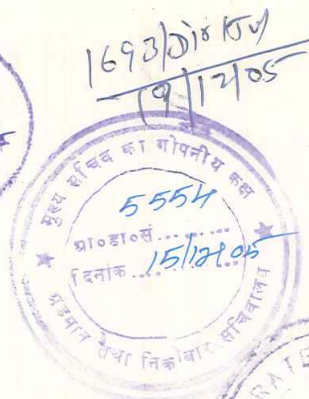 19/12/05
मुख्य सचिव का गोपनीय कक्ष
5554
प्रा०डा०सं......
दिनांक ... 15/12/05
अंडमान तथा निकोबार सचिवालय